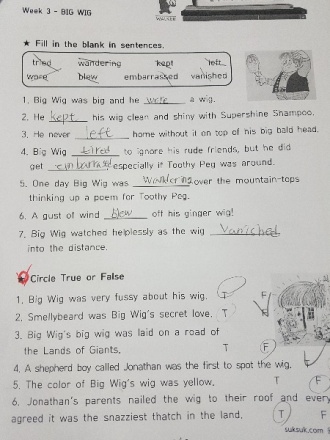 Week 3 - BIG WIG
★ Fill in the blank in sentences.
tried wandering kept left
wore blew embarrassed vanished
1. Big Wig was big and he wore a wig.
2. He kept his wig clean and shiny with Supershine Shampoo.
3. He never left home without it on top of his big bald head.
4. Big Wig tired to ignore his rude friends, but he did
get embarrased especially if Toothy Peg was around.
5. One day Big Wig was wandering over the mountain-tops
thinking up a poem for Toothy Peg.
6. A gust of wind blew off his ginger wig!
7. Big Wig watched helplessly as the wig vanished
into the distance.
★ Circle True or False
1. Big Wig was very fussy about his wig. T F
2. Smellybeard was Big Wig's secret love. T F
3. Big Wig's big wig was laid on a road of
the Lands of Giants. T F
4. A shepherd boy called Jonathan was the first to spot the wig.
5. The color of Big Wig's wig was yellow. T F
6. Jonathan's parents nailed the wig to their roof and every
agreed it was the snazziest thatch in the land. T F
suksuk.com